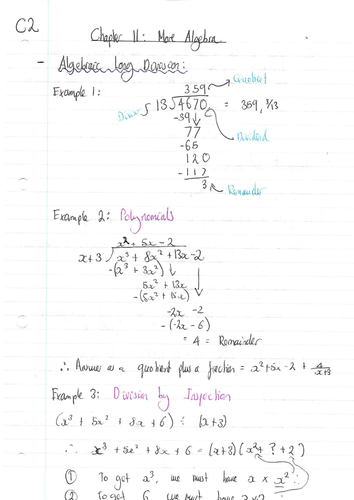 C2
Chapter 11: More Algebra
- Algebraic Long Division:
Example 1:
359 Quotient
Divisor 13√4670 = 359, 3/13
-39↓ Dividend
77
-65
120
-117
3 Remainder
Example 2: Polynomials
x² + 5x - 2
x+3 √x³ + 8x² + 13x - 2
-(x³ + 3x²)
5x² + 13x
-(5x² + 15x)
-2x - 2
-(-2x - 6)
= 4 = Remainder
∴ Answer as a quotient plus a fraction = x²+5x-2 + 4/x+3
Example 3: Division by Inspection
(x³ + 5x² + 8x + 6) ÷ (x+3)
∴ x³ + 5x² + 8x + 6 = (x+3)(x² + ? + 2)
① To get x³, we must have x × x²
② To get 6, we must have 3×2